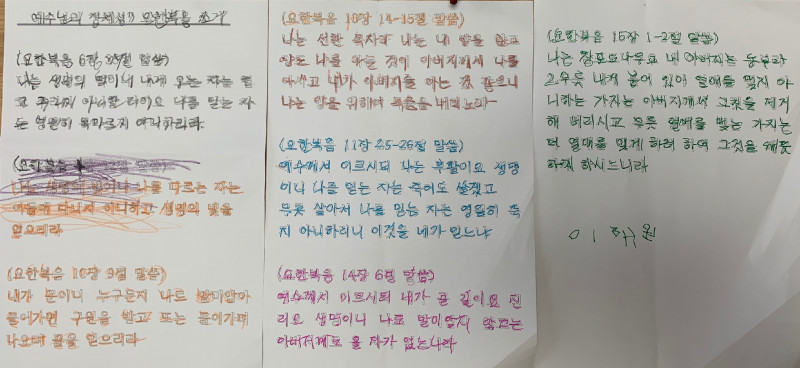 예수님의 정체성 요한복음 쓰기
(요한복음 6장 35절 말씀)
나는 생명의 떡이니 내게 오는 자는 결
코 주리지 아니할 터이요 나를 믿는 자
는 영원히 목마르지 아니하리라.
(요한복음 말씀)
나는 나를 따르는 자는
어둠에 다니지 아니하고 생명의 빛을
얻으리라
(요한복음 10장 9절 말씀)
내가 문이니 누구든지 나로 말미암아
들어가면 구원을 받고 또는 들어가며
나오며 꼴을 얻으리라
(요한복음 10장 14-15절 말씀)
나는 선한 목자라 나는 내 양을 알고
양도 나를 아는 것이 아버지께서 나를
아시고 내가 아버지를 아는 것 같으니
나는 양을 위하여 목숨을 버리노라
(요한복음 11장 25-26절 말씀)
예수께서 이르시되 나는 부활이요 생명
이니 나를 믿는 자는 죽어도 살겠고
무릇 살아서 나를 믿는 자는 영원히 죽
지 아니하리니 이것을 네가 믿느냐
(요한복음 14장 6절 말씀)
예수께서 이르시되 내가 곧 길이요 진
리요 생명이니 나로 말미암지 않고는
아버지께로 올 자가 없느니라
(요한복음 15장 1-2절 말씀)
나는 참포도나무요 내 아버지는 농부라
2.무릇 내게 붙어 있어 열매를 맺지 아
니하는 가지는 아버지께서 그것을 제거
해 버리시고 무릇 열매를 맺는 가지는
더 열매를 맺게 하려 하여 그것을 깨끗
하게 하시느니라
이 원